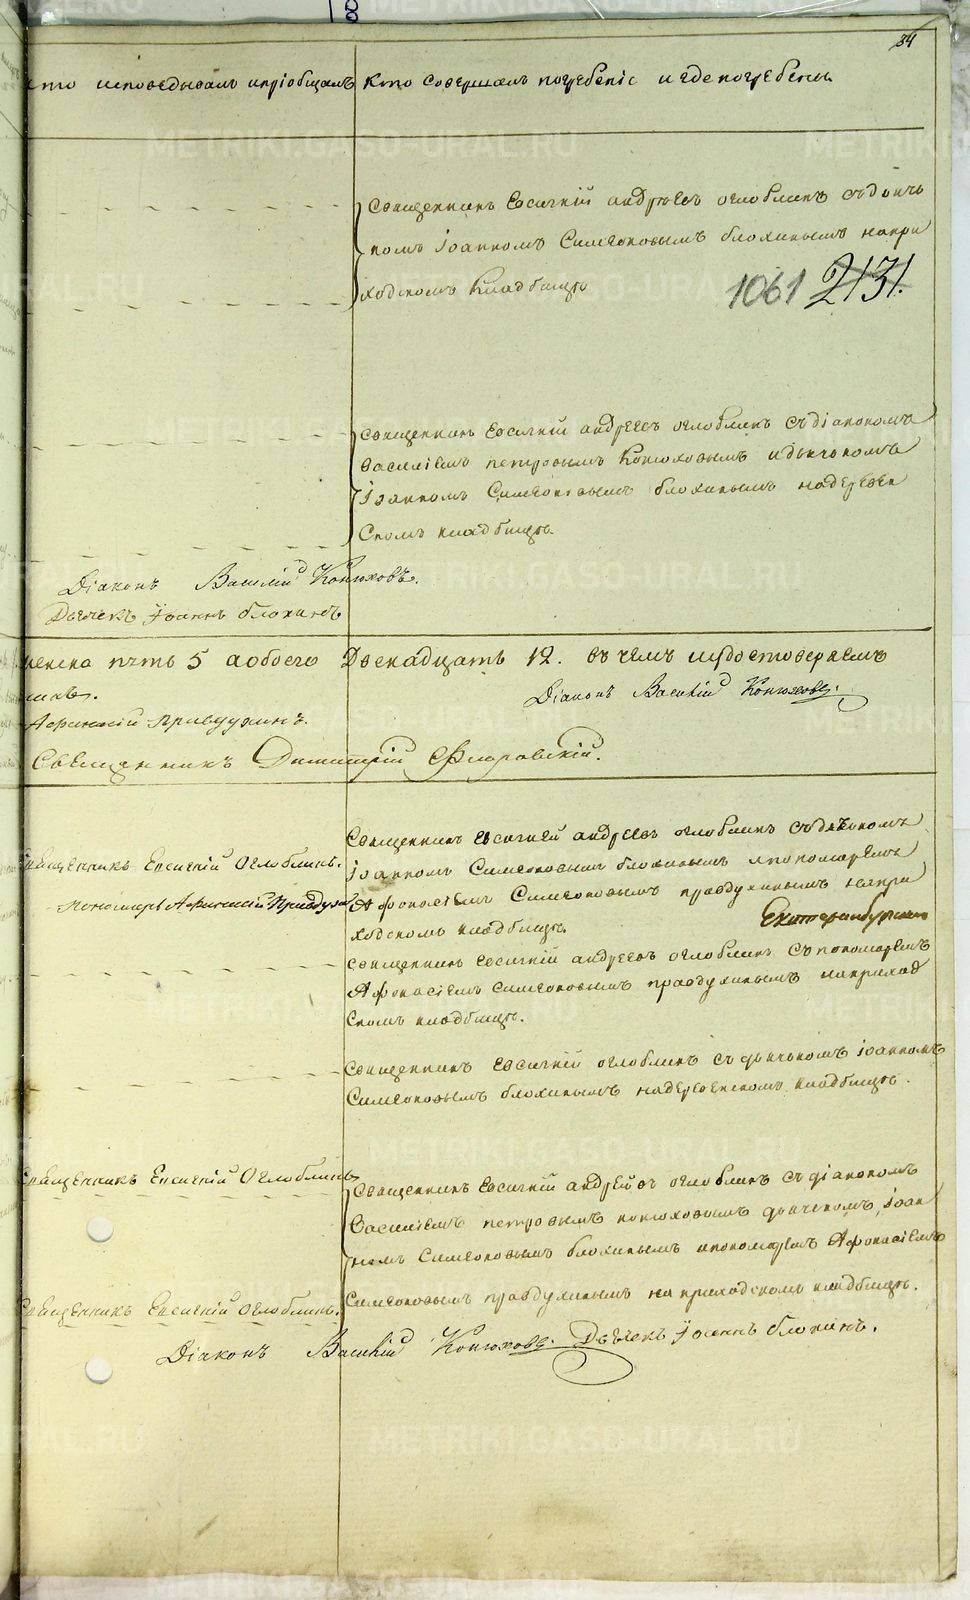 84
кто исповедывалъ и пріобщалъ
Кто совершалъ погребеніе и где погребены
священникъ Евсигній андреевъ оглоблинъ съ дьяч
комъ іоанномъ Симеоновымъ блохинымъ на при
ходскомъ кладбищѣ
1061 2131.
священникъ Евсигній андреевъ оглоблинъ съ діакономъ
Василіемъ петровымъ Конюховымъ и дьячкомъ
іоанномъ Симеоновымъ блохинымъ на деревен
скомъ кладбищѣ.
Діаконъ Василій Конюховъ.
Дьячекъ Іоаннъ блохинъ
женска пять 5 а обоего Двенадцать 12. въ чемъ и удостоверяемъ
Діаконъ Василій Конюховъ.
Афанасій Правдухинъ.
Священникъ Димитрій Флоровскій.
Священникъ Евсигній Оглоблинъ.
пономарь Афанасій Правдухинъ
Священникъ Евсигней андреевъ оглоблинъ съ дьячкомъ
іоанномъ Симеоновымъ блохинымъ и пономаремъ
Афонасіемъ Симеоновымъ правдухинымъ на при
ходскомъ кладбищѣ.
Екатеринбургской
священникъ Евсигній андреевъ оглоблинъ съ пономаремъ
Афонасіемъ симеоновымъ правдухинымъ на приход
скомъ кладбищѣ.
священникъ Евсигній оглоблинъ съ дьячкомъ іоанномъ
Симеоновымъ блохинымъ на деревенскомъ кладбищѣ.
Священникъ Евсигній Оглоблинъ
священникъ Евсигній андреевъ оглоблинъ съ діакономъ
Василіемъ петровымъ конюховымъ дьячкомъ іоан
номъ Симеоновымъ блохинымъ и пономаремъ Афонасіемъ
Священникъ Евсигній Оглоблинъ.
Симеоновымъ правдухинымъ на приходскомъ кладбищѣ.
Діаконъ Василій Конюховъ. Дьячекъ Іоаннъ блохинъ.
METRIKI.GASO-URAL.RU